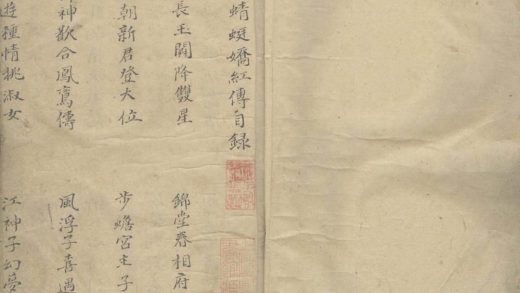 蜻蜓嬌紅傳目録
長玉闕降雙星 錦堂春相府
朝新君登大位 步蟾宮主子
神歡合鳳鸞儔 風浮子喜遇
遊種情挑淑女 江神子幻夢